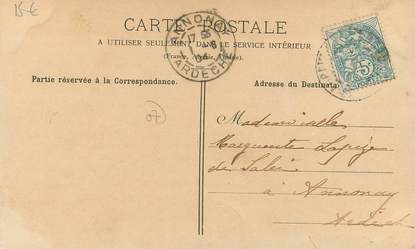 15 €
CARTE POSTALE
A UTILISER SEULEMENT DANS LE SERVICE INTÉRIEUR
(France, Algérie, Tunisie).
ANNONAY
ARDÈCHE
Partie réservée à la Correspondance.
Adresse du Destinataire
07
5
Mademoiselle
Marguerite
de
à Annonay
Ardèch